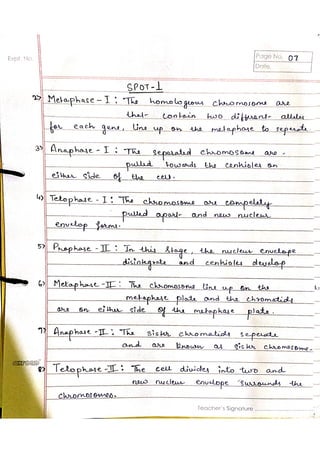 Expt. No.
Page No. 07
Date
SPOT-1
2) Metaphase-I : The homologous chromosome are
that contain two different alleles
for each gene, line up on the metaphase to seperate.
3) Anaphase-I : The seperated chromosome are
pulled towards the centrioles on
either side of the cell.
4) Telophase-I : The chromosome are completely
pulled apart and new nuclear
envelop forms.
5) Prophase-II : In this stage, the nuclear envelope
disintegrate and centrioles develop
6) Metaphase-II : The chromosome line up on the
metaphase plate and the chromatids
are on either side of the metaphase plate.
7) Anaphase-II : The sister chromatids seperate
and are known as sister chromosome.
8) Telophase-II : The cell divides into two and
new nuclear envelope surrounds the
chromosomes.
Teacher's Signature